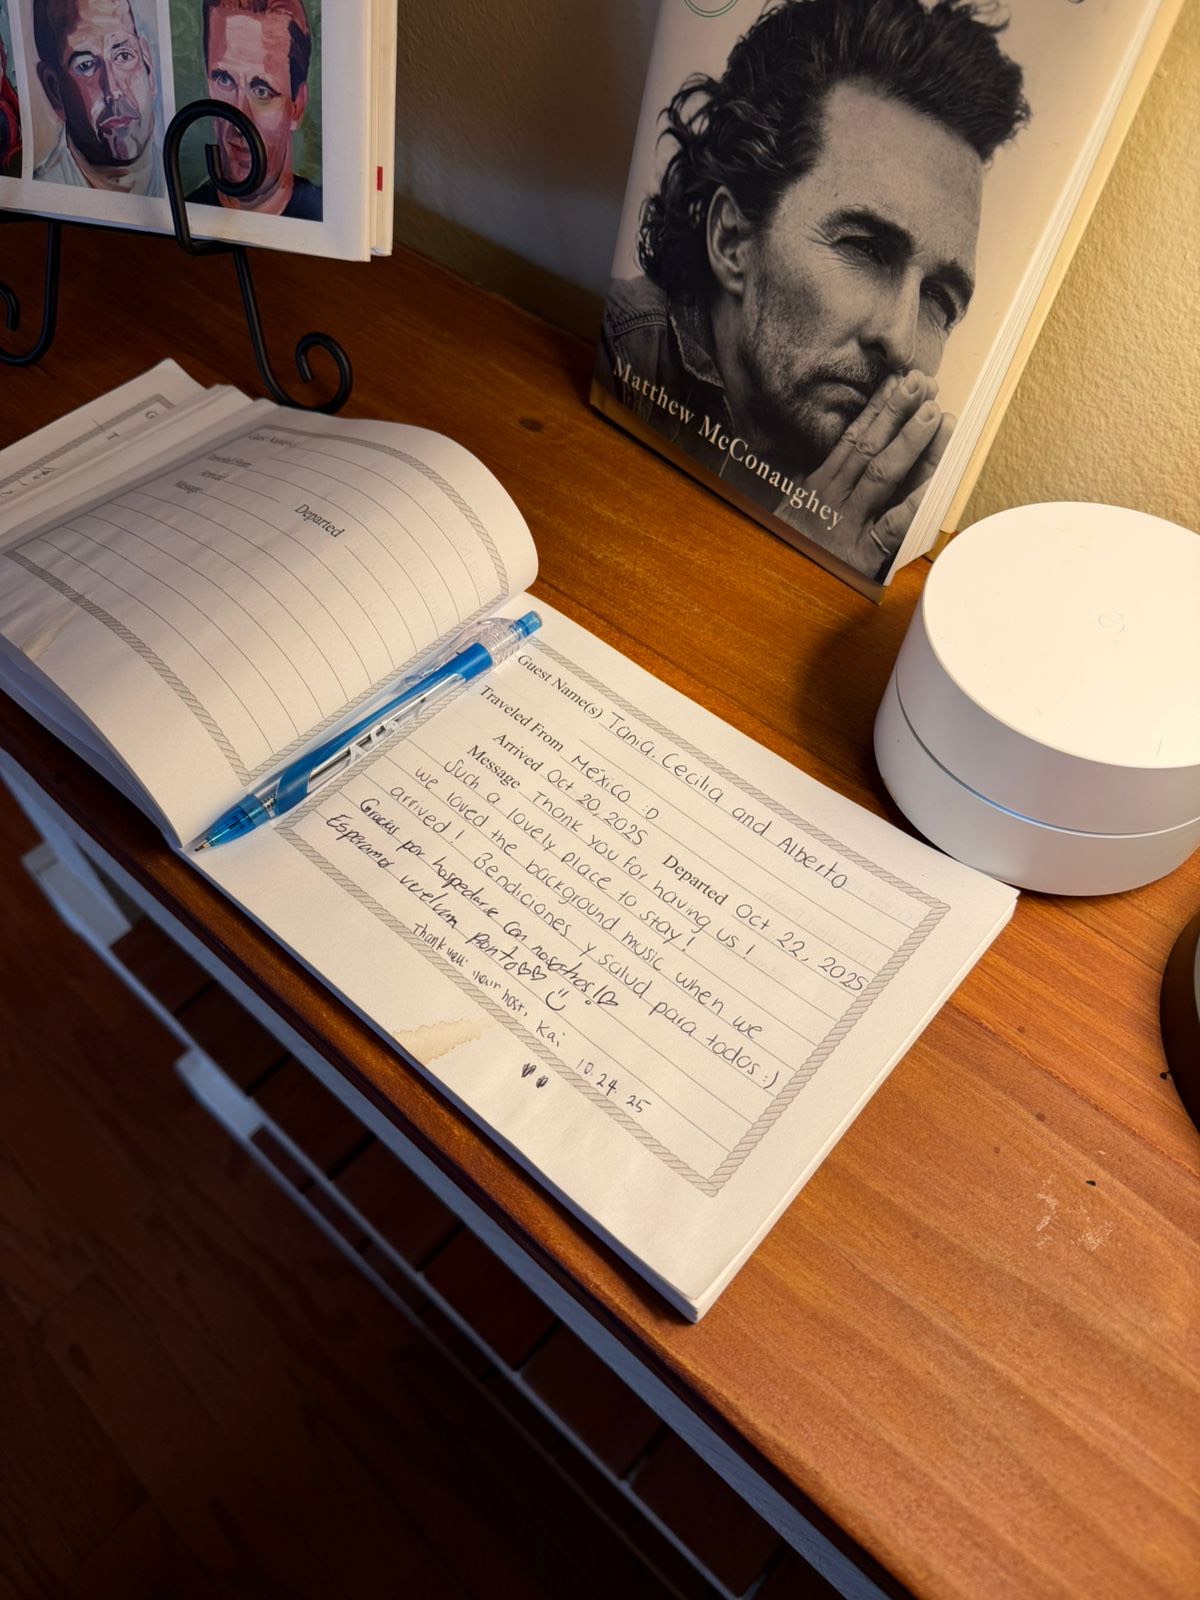 Matthew McConaughey
Departed
Guest Name(s) Tania, Cecilia and Alberto
Traveled From México :D
Arrived Oct 20, 2025 Departed Oct 22, 2025
Message Thank you for having us!
Such a lovely place to stay!
we loved the background music when we
arrived! Bendiciones y salud para todos :)
Gracias por hospedarse con nosotros!
Esperamos vuelvan pronto
your host, Kai 10.24.25